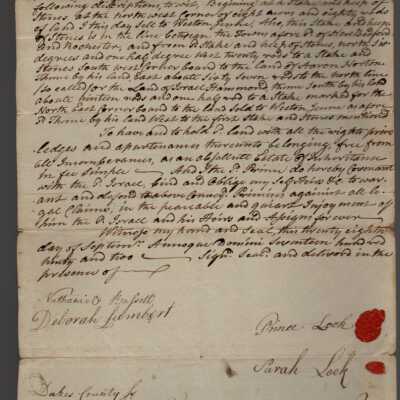 following descriptions, to wit, Begining at a Stake and heep of
Stones, at the North west Corner of eight acres and eighty rods
of Land I this day Sell to Weston Jenne, Also, this Stake and heep
of Stones is in the line between the Towns afore sd. of New Bedford
and Rochester, and from sd. Stake and heep of Stones, north, Six
degrees and one half degree west twenty rods to a Stake and
Stones South west Corner bound to the land of Aaron Norton
Thence by his land East about Sixty Seven rods to the north line
so called for the Land of Israel Hammond thence South by his land
about nineteen rods and one half rod to a Stake marked for the
North East Corner bound to the land Sold to Weston Jenne as afore
sd. Thence by his land West to the first Stake and Stones mentioned
To have and to hold sd. land with all the rights privi
ledges and apurtenances thereunto belonging, free from
all Incumberances, as an absolute Estate of Inheritance
in fee Simple And I the sd. Prince do hereby Covenant
with the sd. Israel bind and Oblige my Self Heirs &c to warr
ant and defend the above Convey'd Premises against all le
gal Claims, in the peaceable and quiet Injoyment of
him the sd. Israel and his Heirs and Assigns for ever
Witness my hand and Seal, this twenty eighth
day of Septemr. Annoque Domini Seventeen hundred
ninty and two Signd. Seald. and delivered in the
presence of
Nathaniel Bassett
Deborah Lumbert
Prince Look
Sarah Look
Dukes County Ss